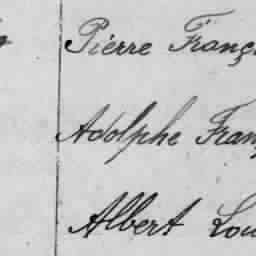 Pierre Franç
Adolphe Franç
Albert Lou